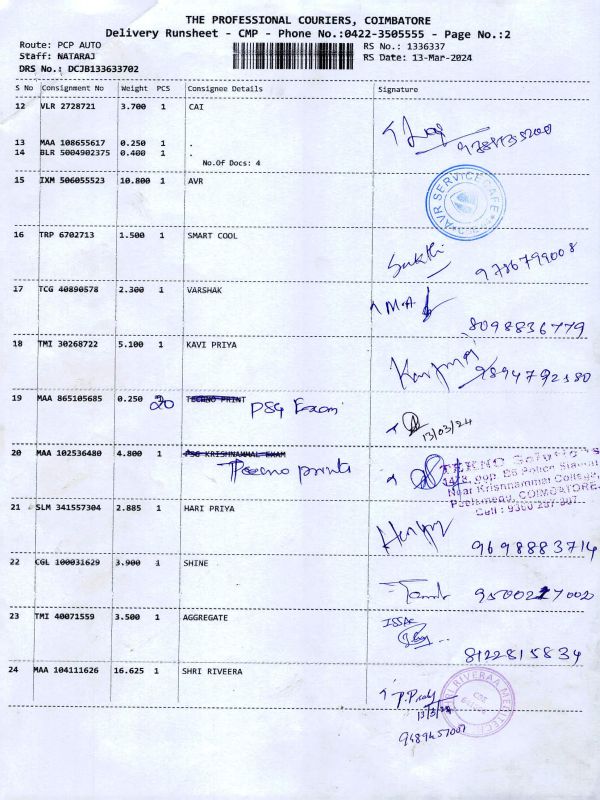 THE PROFESSIONAL COURIERS, COIMBATORE
Delivery Runsheet - CMP - Phone No.:0422-3505555 - Page No.:2
Route: PCP AUTO RS No.: 1336337
Staff: NATARAJ RS Date: 13-Mar-2024
DRS No.: DCJB133633702
S No Consignment No Weight PCS Consignee Details Signature
12 VLR 2728721 3.700 1 CAI
13 MAA 108655617 0.250 1 .
14 BLR 5004902375 0.400 1 .
No.Of Docs: 4
15 IXM 506055523 10.800 1 AVR
AVR SERVICE CAFE
16 TRP 6702713 1.500 1 SMART COOL
Sakthi 9786799008
17 TCG 40890578 2.300 1 VARSHAK
M.A
8098836779
18 TMI 30268722 5.100 1 KAVI PRIYA
9894792380
19 MAA 865105685 0.250 20 TECHNO PRINT PSG Exam
13/03/24
20 MAA 102536480 4.800 1 PSG KRISHNAMMAL EXAM
Techno prints
TEKNO Solutions
Near Krishnammal College,
Peelamedu, COIMBATORE
21 SLM 341557304 2.885 1 HARI PRIYA
9698883714
22 CGL 100031629 3.900 1 SHINE
9500217002
23 TMI 40071559 3.500 1 AGGREGATE
ISSAC
8122815834
24 MAA 104111626 16.625 1 SHRI RIVEERA
13/3/24
9489457007